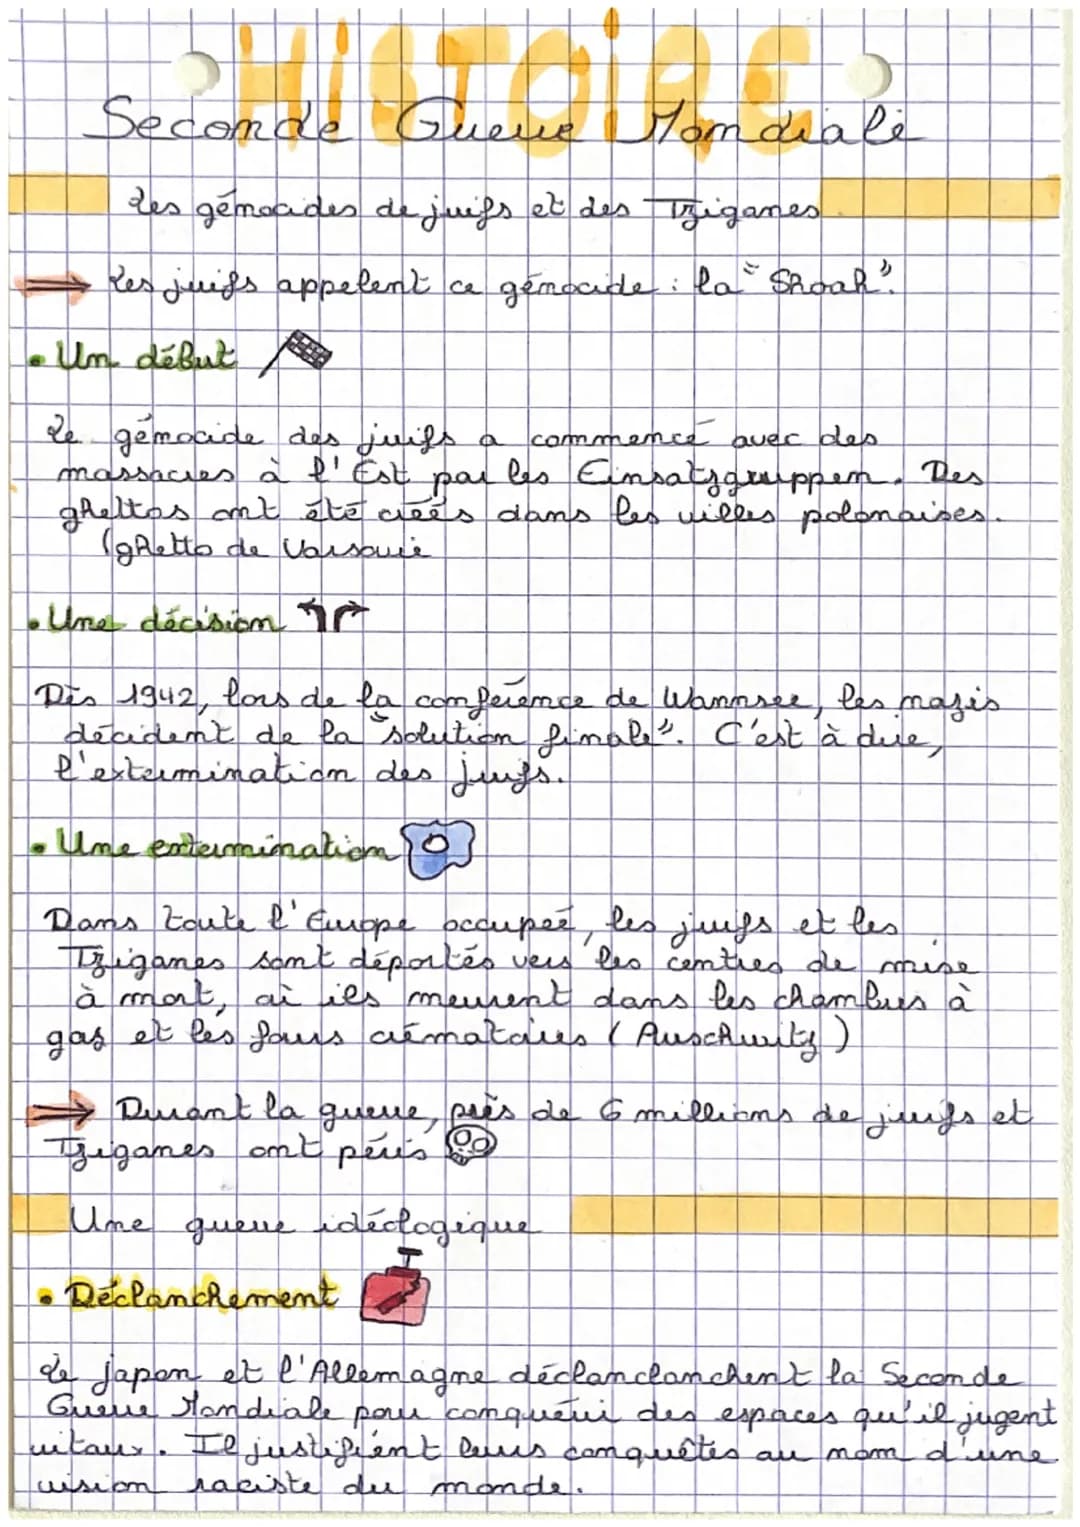 HISTOIRE
Seconde Guerre Mondiale
Les génocides de juifs et des Tziganes
Les juifs appelent ce génocide : la "Shoah".
• Un début
Le génocide des juifs a commencé avec des
massacres à l'Est par les Einsatzgruppen. Des
ghettos ont été créés dans les villes polonaises.
(ghetto de Varsovie
• Une décision
Dès 1942, lors de la conférence de Wannsee, les nazis
décident de la "solution finale". C'est à dire,
l'extermination des juifs.
• Une extermination
Dans toute l'Europe occupée, les juifs et les
Tziganes sont déportés vers les centres de mise
à mort, où ils meurent dans les chambres à
gaz et les fours crématoires (Auschwitz)
Durant la guerre, près de 6 millions de juifs et
Tziganes ont péris
Une guerre idéologique
• Déclanchement
Le japon et l'Allemagne déclanclanchent la Seconde
Guerre Mondiale pour conquérir des espaces qu'il jugent
vitaux. Il justifient leurs conquêtes au nom d'une
vision raciste du monde.